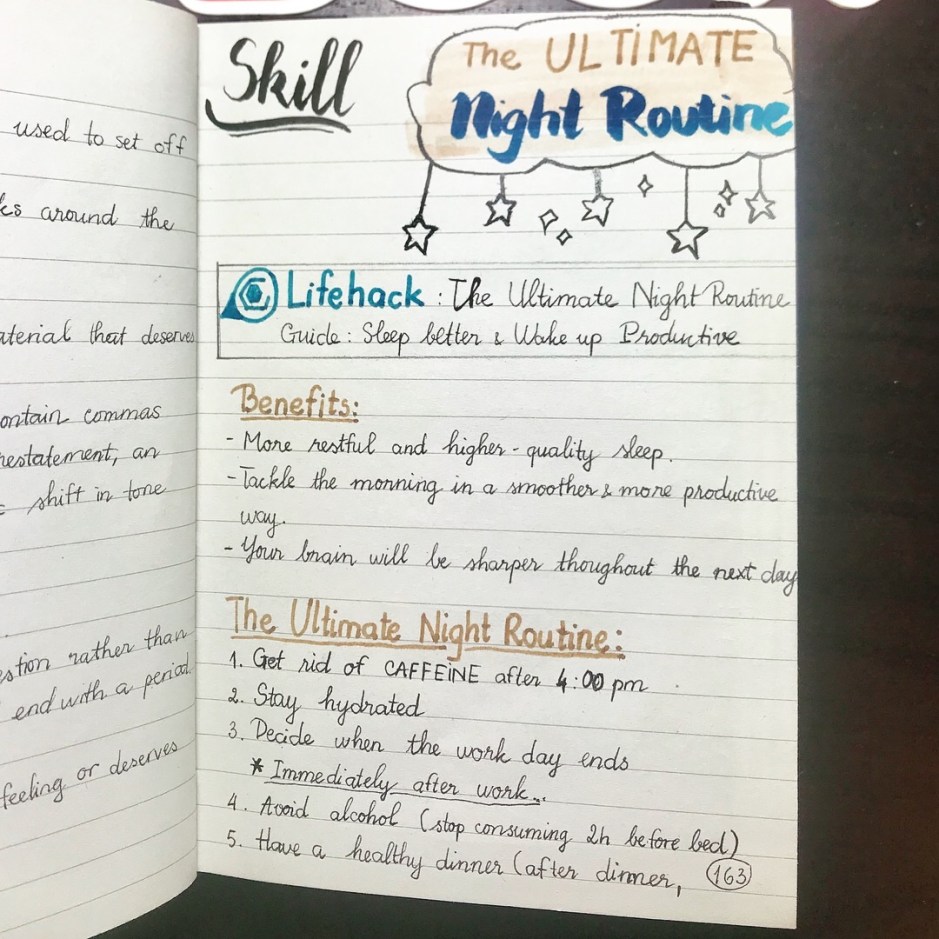 used to set off
ks around the
aterial that deserves
ontain commas
restatement, an
shift in tone
stion rather than
end with a period.
feeling or deserves
Skill
The ULTiMATE
Night Routine
Lifehack : The Ultimate Night Routine
Guide : Sleep better & Wake up Productive
Benefits:
- More restful and higher - quality sleep.
- Tackle the morning in a smoother & more productive
way.
- Your brain will be sharper thoughout the next day
The Ultimate Night Routine:
1. Get rid of CAFFEiNE after 4:00 pm
2. Stay hydrated
3. Decide when the work day ends
* Immediately after work...
4. Avoid alcohol (stop consuming 2h before bed)
5. Have a healthy dinner (after dinner,
163